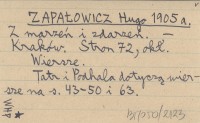 ZAPAŁOWICZ Hugo 1905 a.
Z marzeń i zdarzeń. —
Kraków. Stron 72, okł.
Wiersze.
Tatr i Podhala dotyczą wier-
sze na s. 43-50 i 63.
WHP